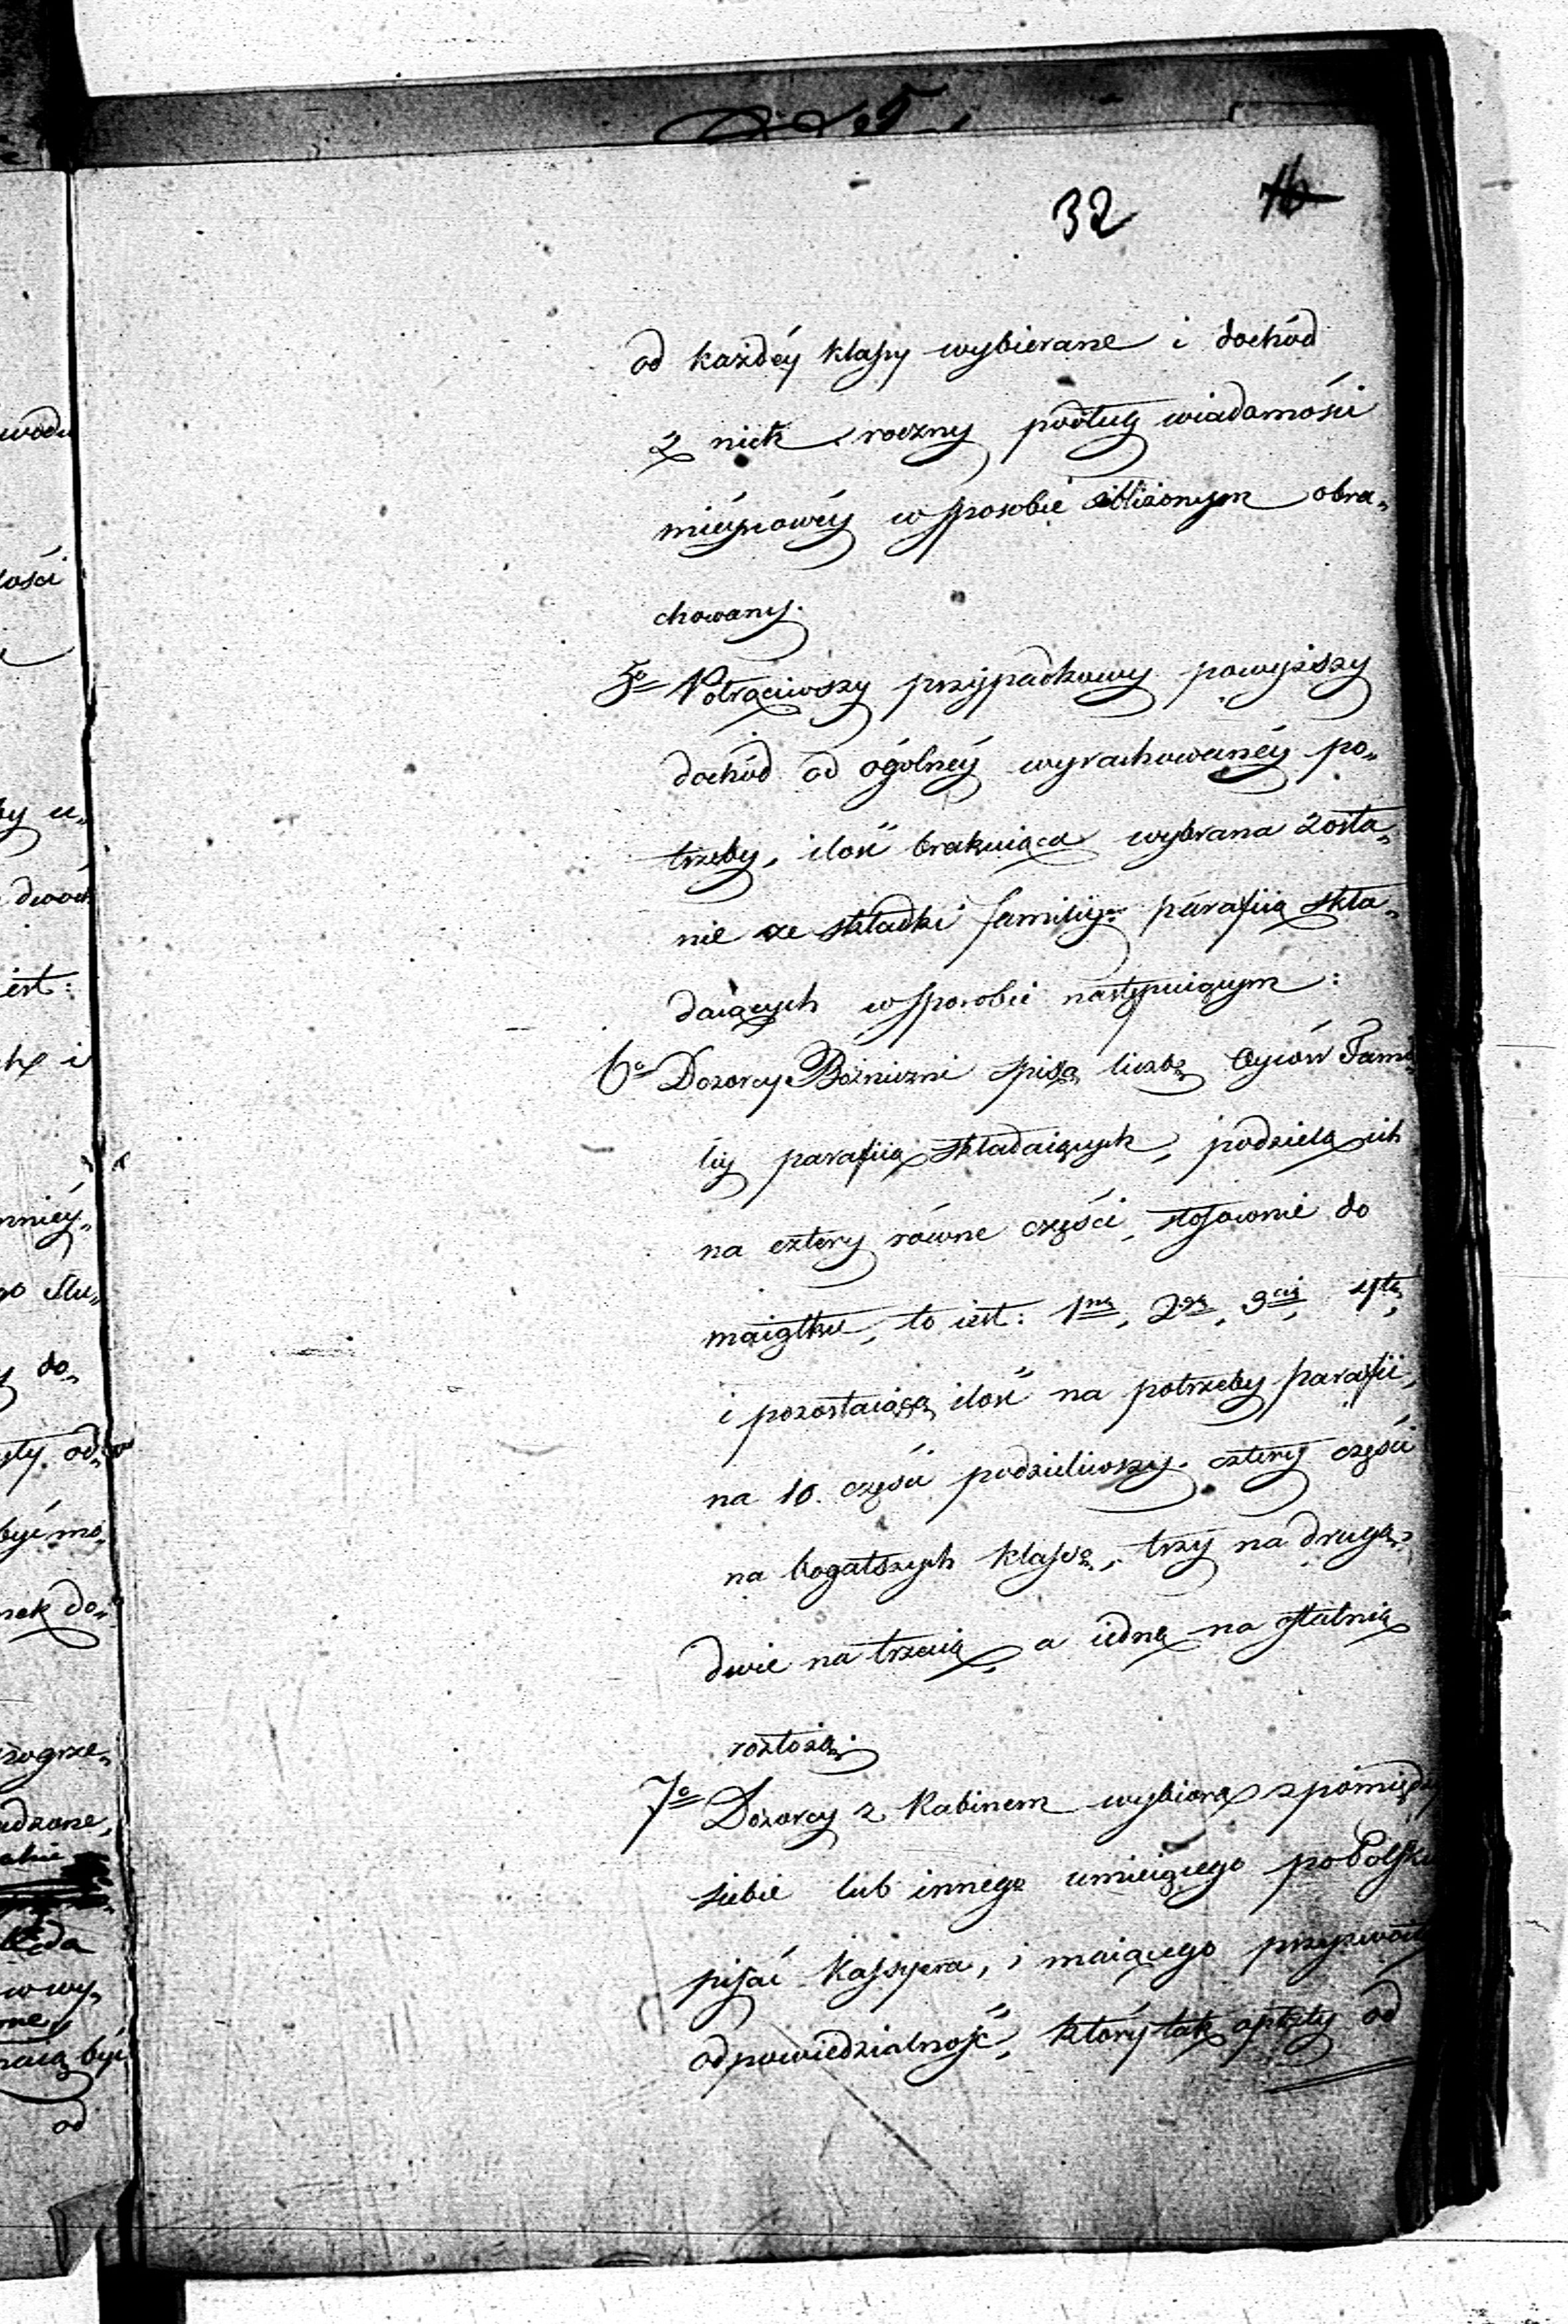 32 16
od każdéy klassy wybierane i dochód
z nich roczny podług wiadomości
mieyscowéy w sposobie zbliżonym obra„
chowany.
5o Potrąciwszy przypadkowy powyższy
dochód od ogólnéy wyrachowanéy po„
trzeby, ilość brakuiąca wybrana zosta„
nie ze składki familiy parafiią skła„
daiących w sposobie następuiącym:
6o Dozorcy Bóżniczni spiszą liczbę Oyców Fami
liy parafiią składaiących, podzielą ich
na cztery równe części, stosownie do
maiątku, to iest: 1ną, 2gą, 3cią, 4tą,
i pozostaiącą ilość na potrzeby parafii,
na 10. części podzieliwszy. cztery części
na bogatszych klassę, trzy na drugą,
dwie na trzecią, a iedną na ostatnią
rozłożą.
7o Dozorcy z Rabinem wybiorą z pomiędzy
siebie lub innego umieiącego po Polsku
pisać Kassyera, i maiącego przyzwoitą
odpowiedzialność, który tak opłaty od
wodu
łości
by u„
dwóch
iest:
ch i
mniéy„
go słu„
do„
od„
być mo„
nek do„
pogrze„
adzone,
w wy„
maią być
od